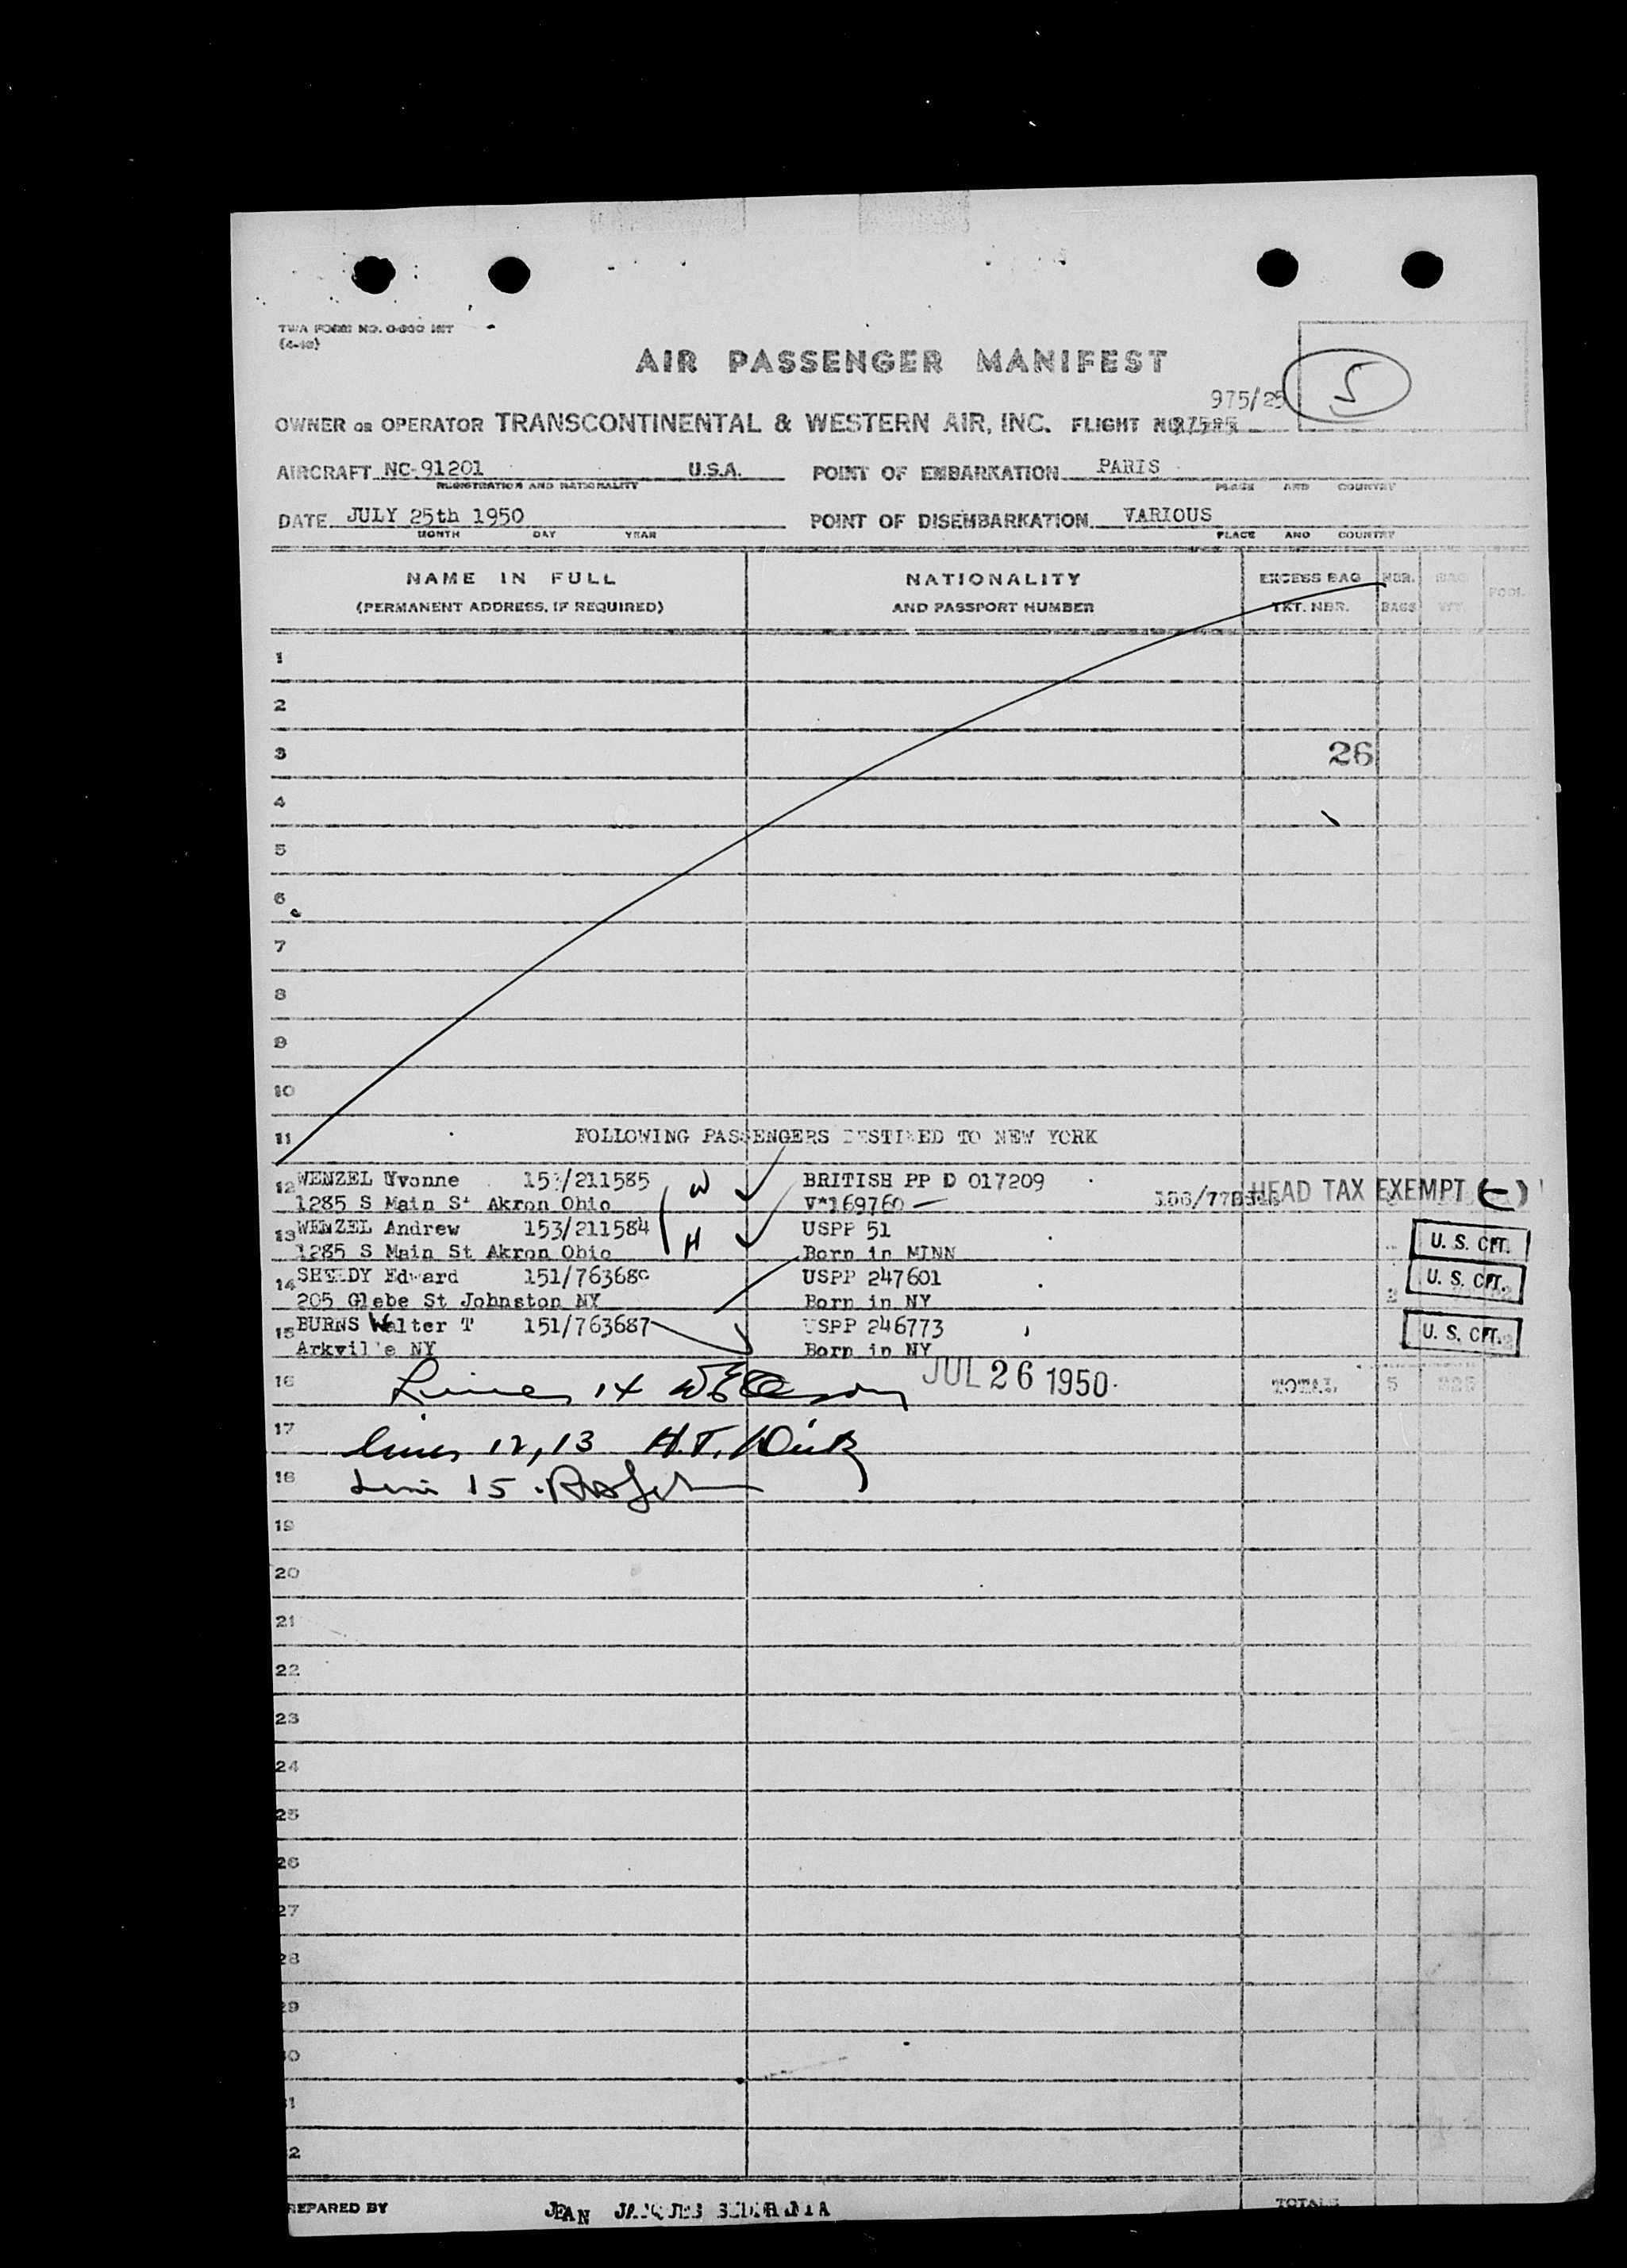 TWA FORM NO.
AIR PASSENGER MANIFEST
5
975/25
OWNER OR OPERATOR TRANSCONTINENTAL & WESTERN AIR, INC. FLIGHT NO.
AIRCRAFT NC-91201 U.S.A. POINT OF EMBARKATION PARIS
REGISTRATION AND NATIONALITY PLACE AND COUNTRY
DATE JULY 25th 1950 POINT OF DISEMBARKATION VARIOUS
MONTH DAY YEAR PLACE AND COUNTRY
NAME IN FULL NATIONALITY EXCESS BAG NBR. BAG POOL
(PERMANENT ADDRESS, IF REQUIRED) AND PASSPORT NUMBER TKT. NBR. BAGS WT.
1
2
3 26
4
5
6
7
8
9
10
11 FOLLOWING PASSENGERS DESTINED TO NEW YORK
12 WENZEL Yvonne W BRITISH PP D 017209
1285 S Main St Akron Ohio V*169760 HEAD TAX EXEMPT
13 WENZEL Andrew 153/211584 H USPP 51 U. S. CIT.
1285 S Main St Akron Ohio Born in MINN
14 Edward USPP 247601 U. S. CIT.
205 Glebe St Johnston NY Born in NY
15 BURNS Walter T 151/763687 USPP 246773 U. S. CIT.
Arkville NY Born in NY
16 Lines 14 JUL 26 1950 TOTAL 5
17 lines 12, 13 H.T.
18 Line 15
19
20
21
22
23
24
25
26
27
28
29
30
31
32
PREPARED BY JEAN JACQUES TOTALS